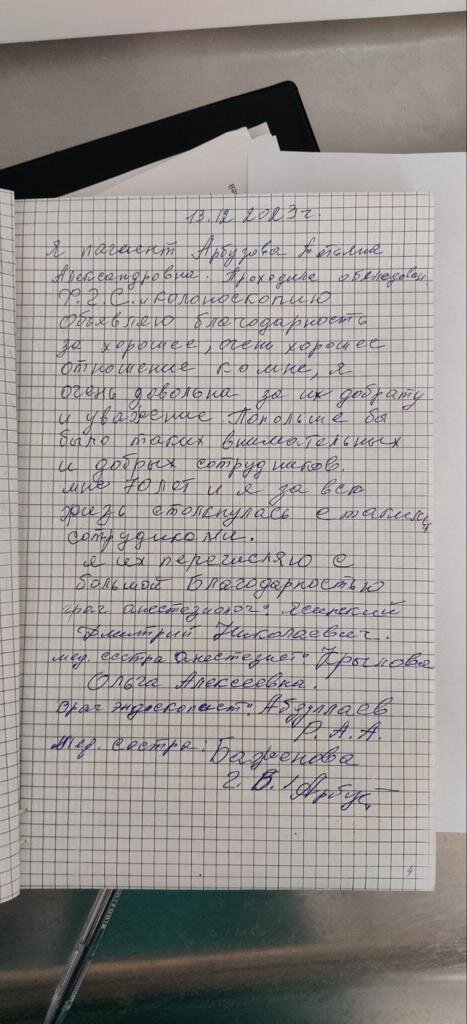 13.12 2023г.
Я пациент Арбузова Татьяна
Александровна. Проходила обследован
Ф.Г.С. и колоноскопию
Объявляю благодарность
за хорошее, очень хорошее
отношение ко мне, я
очень довольна за их доброту
и уважение Попольше бы
было таких внимательных
и добрых сотрудников.
мне 70 лет и я за всю
жизь столкнулась с такими
сотрудиками.
я их перечисляю с
большой Благодарностью
врач анестезиолог: Ясинский
Дмитрий Николаевич.
мед. сестра анестезист: Крылова
Ольга Алексеевна.
Врач эндоскопист: Абдуллаев
Р.А.А.
Мед. сестра: Баженова
Г.В.
4